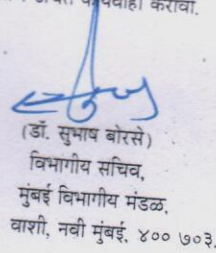 कार्यवाही करावी.
(डॉ. सुभाष बोरसे)
विभागीय सचिव,
मुंबई विभागीय मंडळ,
वाशी, नवी मुंबई, ४०० ७०३.